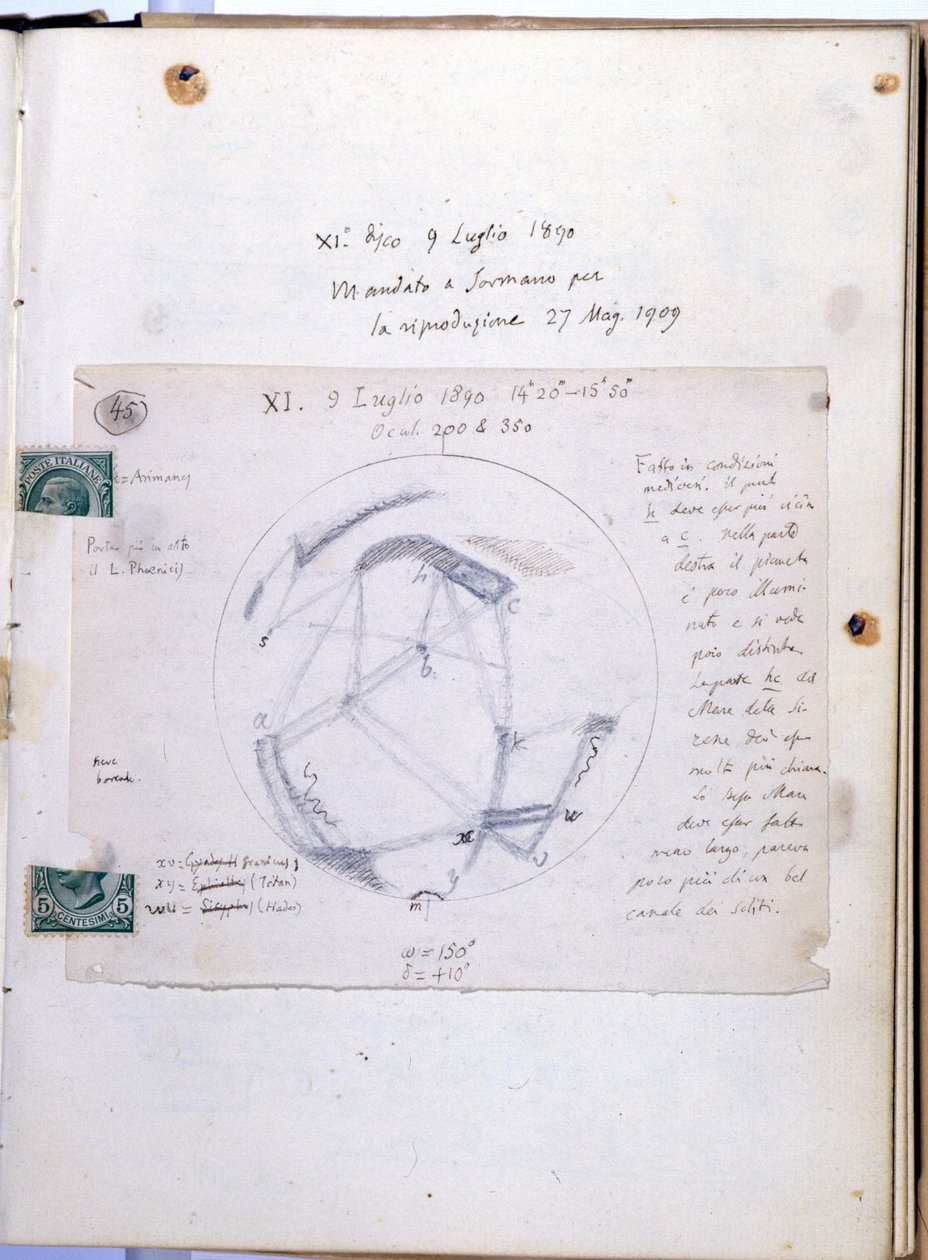 XI.° disco 9 Luglio 1890
Mandato a Sormano per
la riproduzione 27 Mag. 1909
45
XI. 9 Luglio 1890 14h 20m – 15h 50m
Ocul. 200 & 350
POSTE ITALIANE
e = Arimanes
Portar più in alto
il L. Phoenicis
Fatto in condizioni
mediocri. il punto
h deve esser più vicin
a c. nella parte
destra il pianeta
è poco illumi-
nato e si vede
poco distinto.
La parte hc del
Mare delle Si-
rene deve esser
molto più chiara.
Lo stesso Mare
deve esser fatto
meno largo, pareva
poco più di un bel
canale dei soliti.
s
h
c
b
a
k
x
u
v
y
m
neve
boreale.
xv =
xy = (Titan)
= (Hades)
5 CENTESIMI 5
ω = 150°
δ = +10°